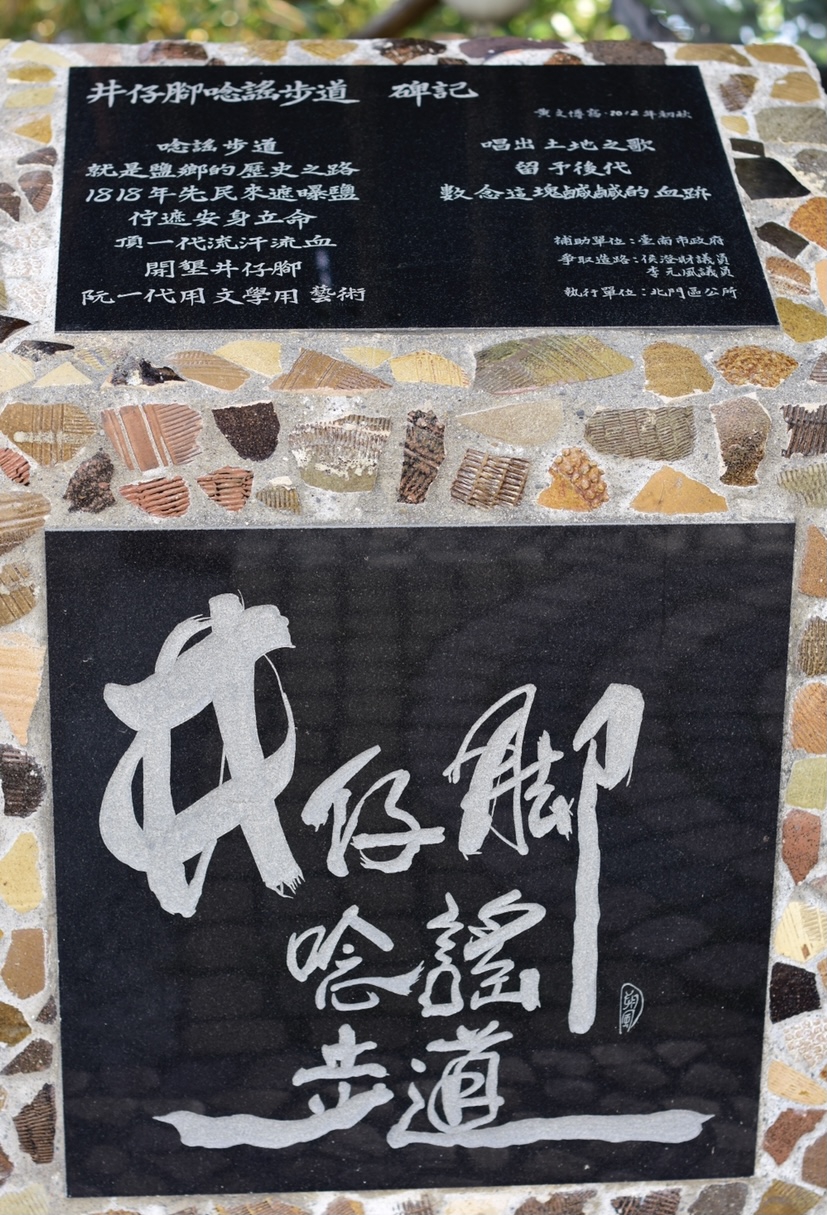 井仔腳唸謠步道　碑記
黃文博寫·2012年初秋
唸謠步道
就是鹽鄉的歷史之路
1818年先民來遮曝鹽
佇遮安身立命
頂一代流汗流血
開墾井仔腳
阮一代用文學用藝術
唱出土地之歌
留予後代
數念這塊鹹鹹的血跡
補助單位：臺南市政府
爭取造路：侯澄財議員
李元風議員
執行單位：北門區公所
井仔腳
唸謠
步道